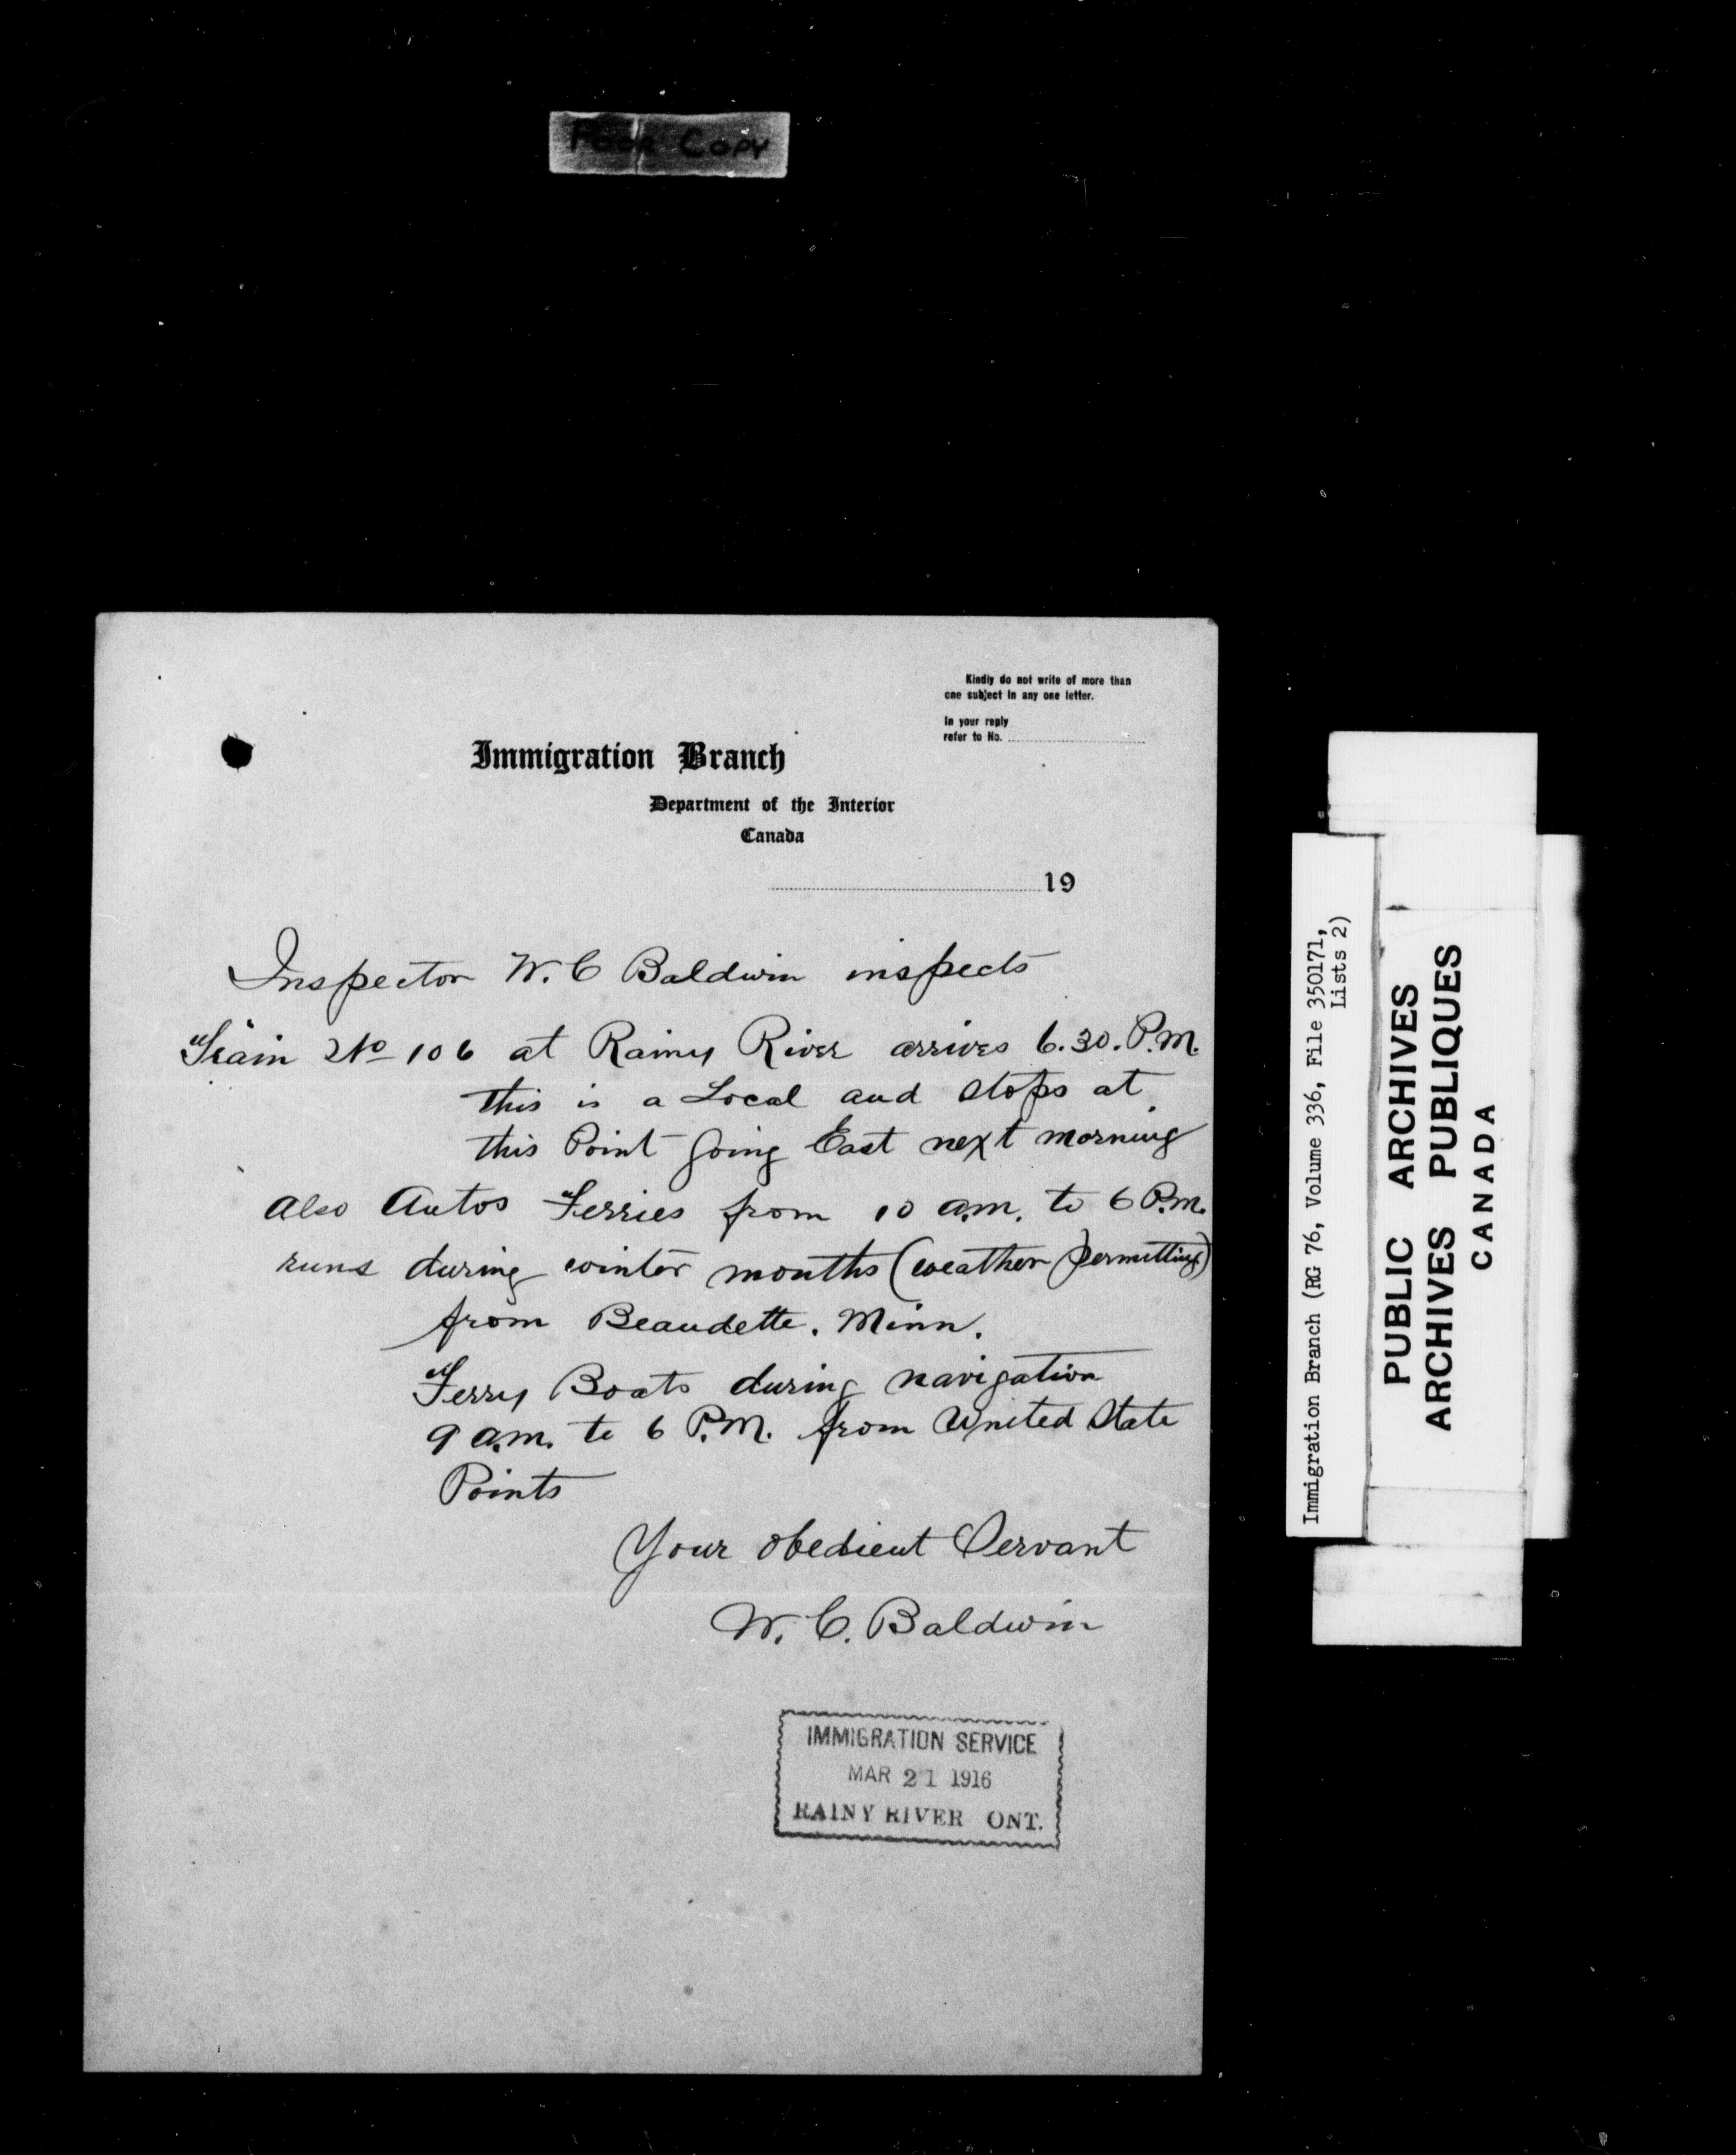 Poor Copy
Kindly do not write of more than
one subject in any one letter.
In your reply
refer to No.
Immigration Branch
Department of the Interior
Canada
19
Inspector W. C Baldwin inspects
Train No 106 at Rainy River arrives 6.30. P.M.
this is a Local and stops at
this Point going East next morning
also Autos Ferries from 10 a.m. to 6 P.m.
runs during winter months (weather permitting)
from Beaudette. Minn.
Ferry Boats during navigation
9 a.m. to 6 P.M. from United State
Points
Your obedient Servant
W. C. Baldwin
IMMIGRATION SERVICE
MAR 21 1916
RAINY RIVER ONT.
Immigration Branch (RG 76, Volume 336, File 350171,
Lists 2)
PUBLIC ARCHIVES
ARCHIVES PUBLIQUES
CANADA